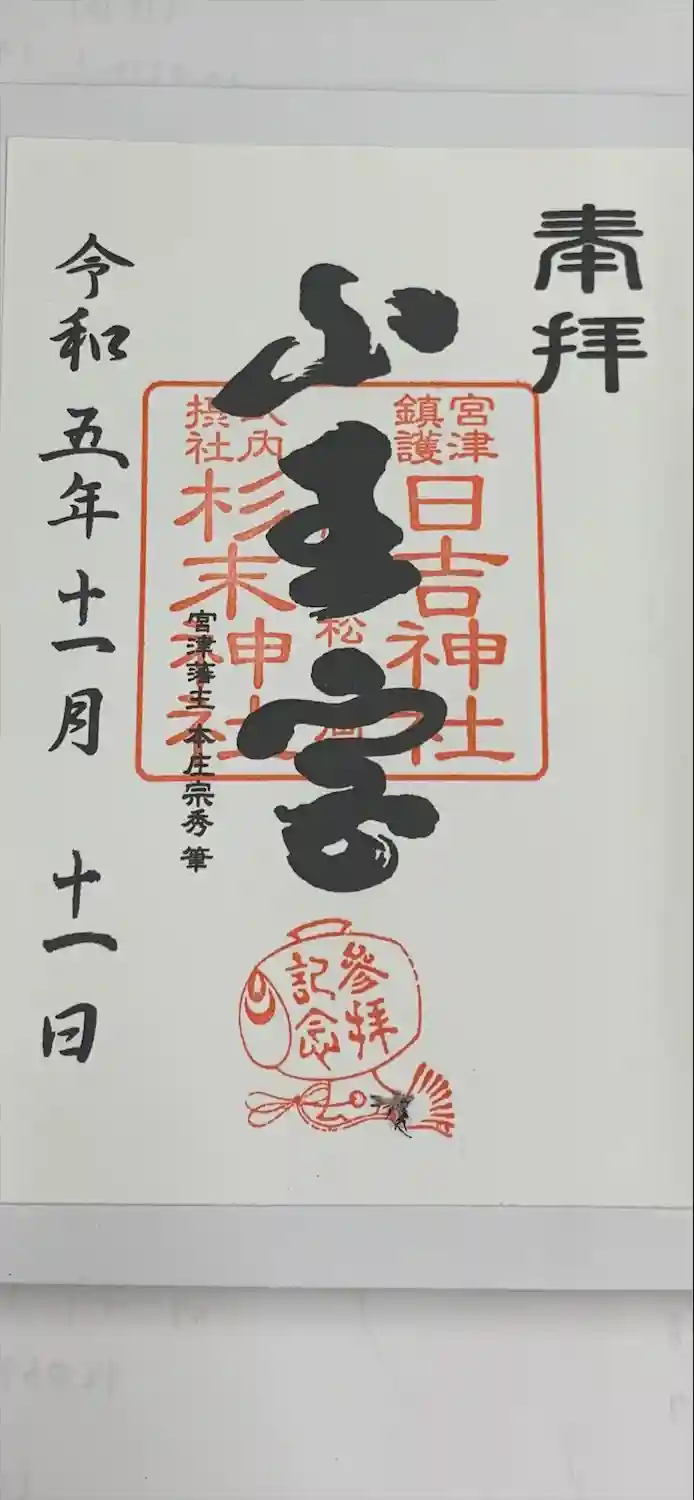 奉拝
宮津
鎮護
日吉神社
山王宮
松
式内
摂社
杉末神社
宮津藩主 本庄宗秀 筆
令和五年十一月 十一日
參拝
記念